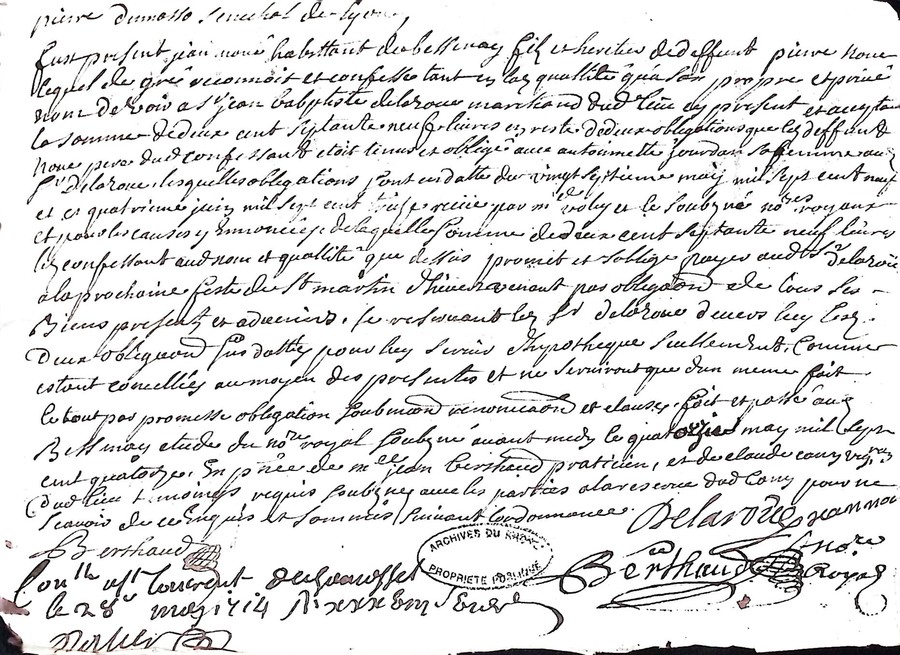 pierre dumasso senechal de Lyon,
fust present jean noué habittant de bessenay filz et heritier de deffunt pierre noue
lequel de gré reconnoit et confesse tant en laz quallité qu'a son propre et privé
nom devoir a sr jean baptiste delaroue marchand dud lieu cy present et acceptant
la somme de deux cent septante neuf livres en reste de deux obligations que led deffunt
noue pere dud confessant etoit tenu et obligé avec antoinette jourdan sa femme aud
sr delaroue lesquelles obligations sont en datte du vingt septieme may mil sept cent neuf
et et quatrieme juin mil sept cent treise receüe par me et le soubzné nores royaux
et pour les causes y ennoncées de laquelle somme de deux cent septante neuf livres
led confessant aud nom et quallité que dessus promet et soblige payer aud sr delaroüe
a la prochaine feste de st martin d'hiver venant par obligaon de tous ses
Biens presentz et advenirs, se reservant led sr delaroue devers luy lesd
deux obligaons sus dattés pour luy servir d'hypotheque seullement, comme
estant concelliés au moyen des presentes et ne serviront que d'un meme fait
le tout par promesse obligation soubmiaon renonciaon et clauses, fait et passé aud
Bessenay etude du nore royal soubzné avant midy le quatorzie may mil sept
cent quatorze, En pnce de me jean berthaud praticien, et de claude cony
dud lieu temoings requis soubznes avec les parties a la reserve dud Cony pour ne
scavoir de ce Enquis et sommés suivant lordonnance. Delaroüe jean noue
Berthaud
ARCHIVES DU RHONE
PROPRIETE PUBLIQUE
Berthaud nore Royal
Conlle
le 28e may 1714